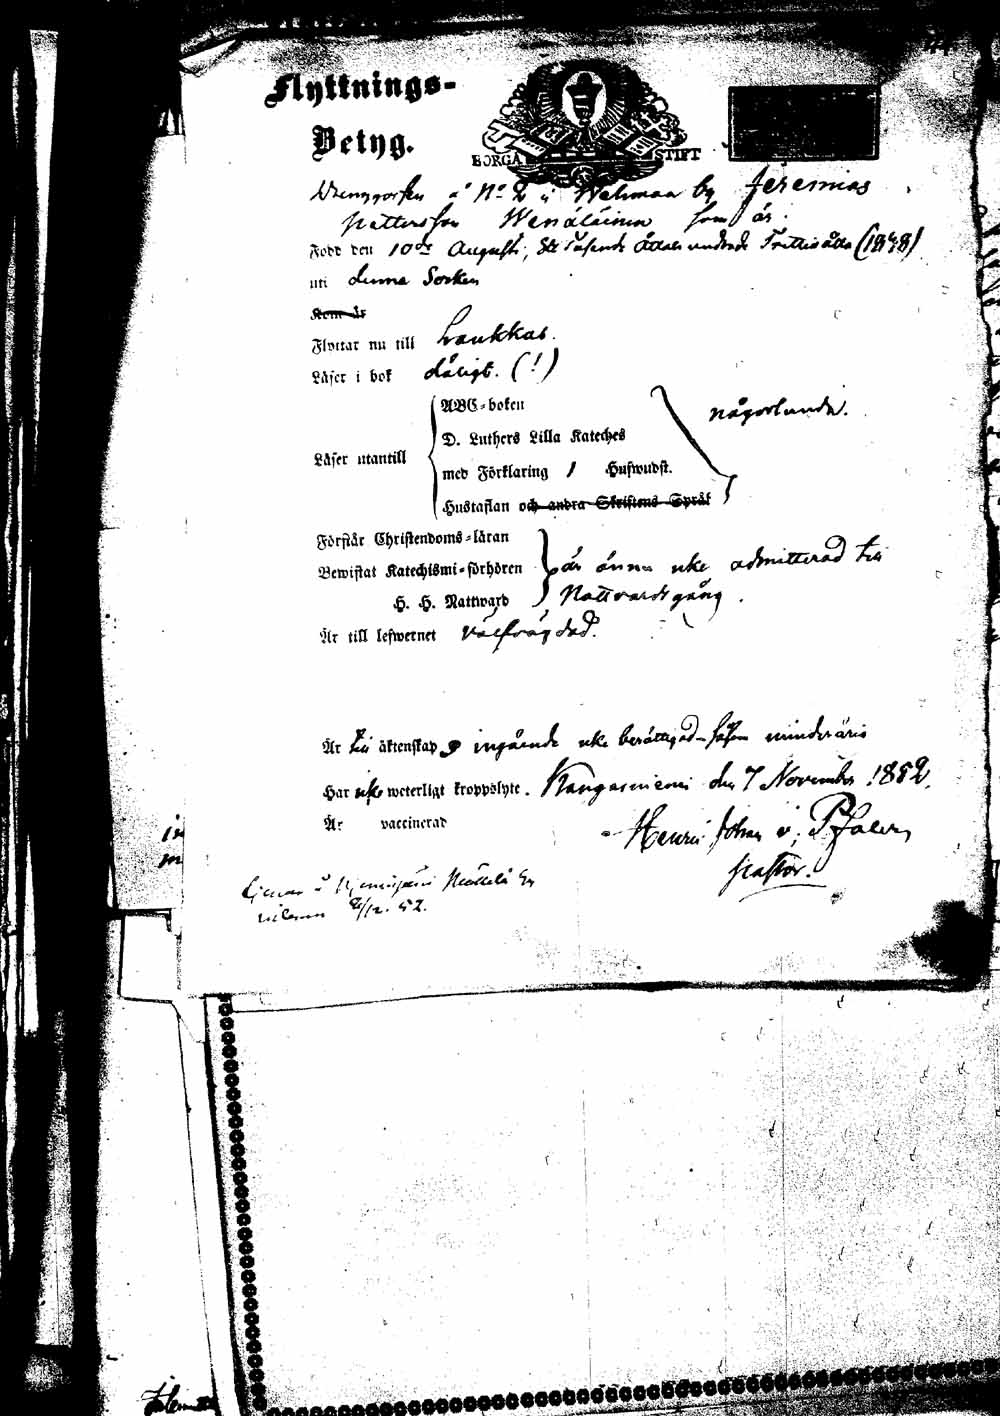 Flyttnings-
Betyg.
BORGÅ STIFT
Drenggossen å No 2 i Wehmaa by Jeremias
Pettersson Wenäläinen som är
Född den 10de Augusti, Ett Tusende Åttahundrade Trettioåtta (1838)
uti denna Socken
Som är
Flyttar nu till Laukkas.
Läser i bok dåligt. (!)
ABC-boken någorlunda.
D. Luthers Lilla Kateches
Läser utantill
med Förklaring 1 Hufwudst.
Hustaflan och andra Skriftens Språk
Förstår Christendoms-läran
Bewistat Katechismi-förhören är ännu icke admitterad till
H. H. Nattward Nattvardsgång.
Är till lefwernet välfrägdad.
Är till äktenskaps ingående icke berättigad såsom minderårig
Har icke weterligt kroppslyte. Kangasniemi den 7 November 1852.
Är vaccinerad
Henric Johan v. Pfaler
Pastor.
Tjenar å
8/12. 52.